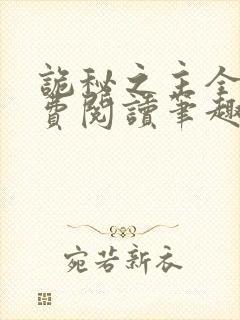 詭秘之主全
費閱讀筆趣
宛若新衣